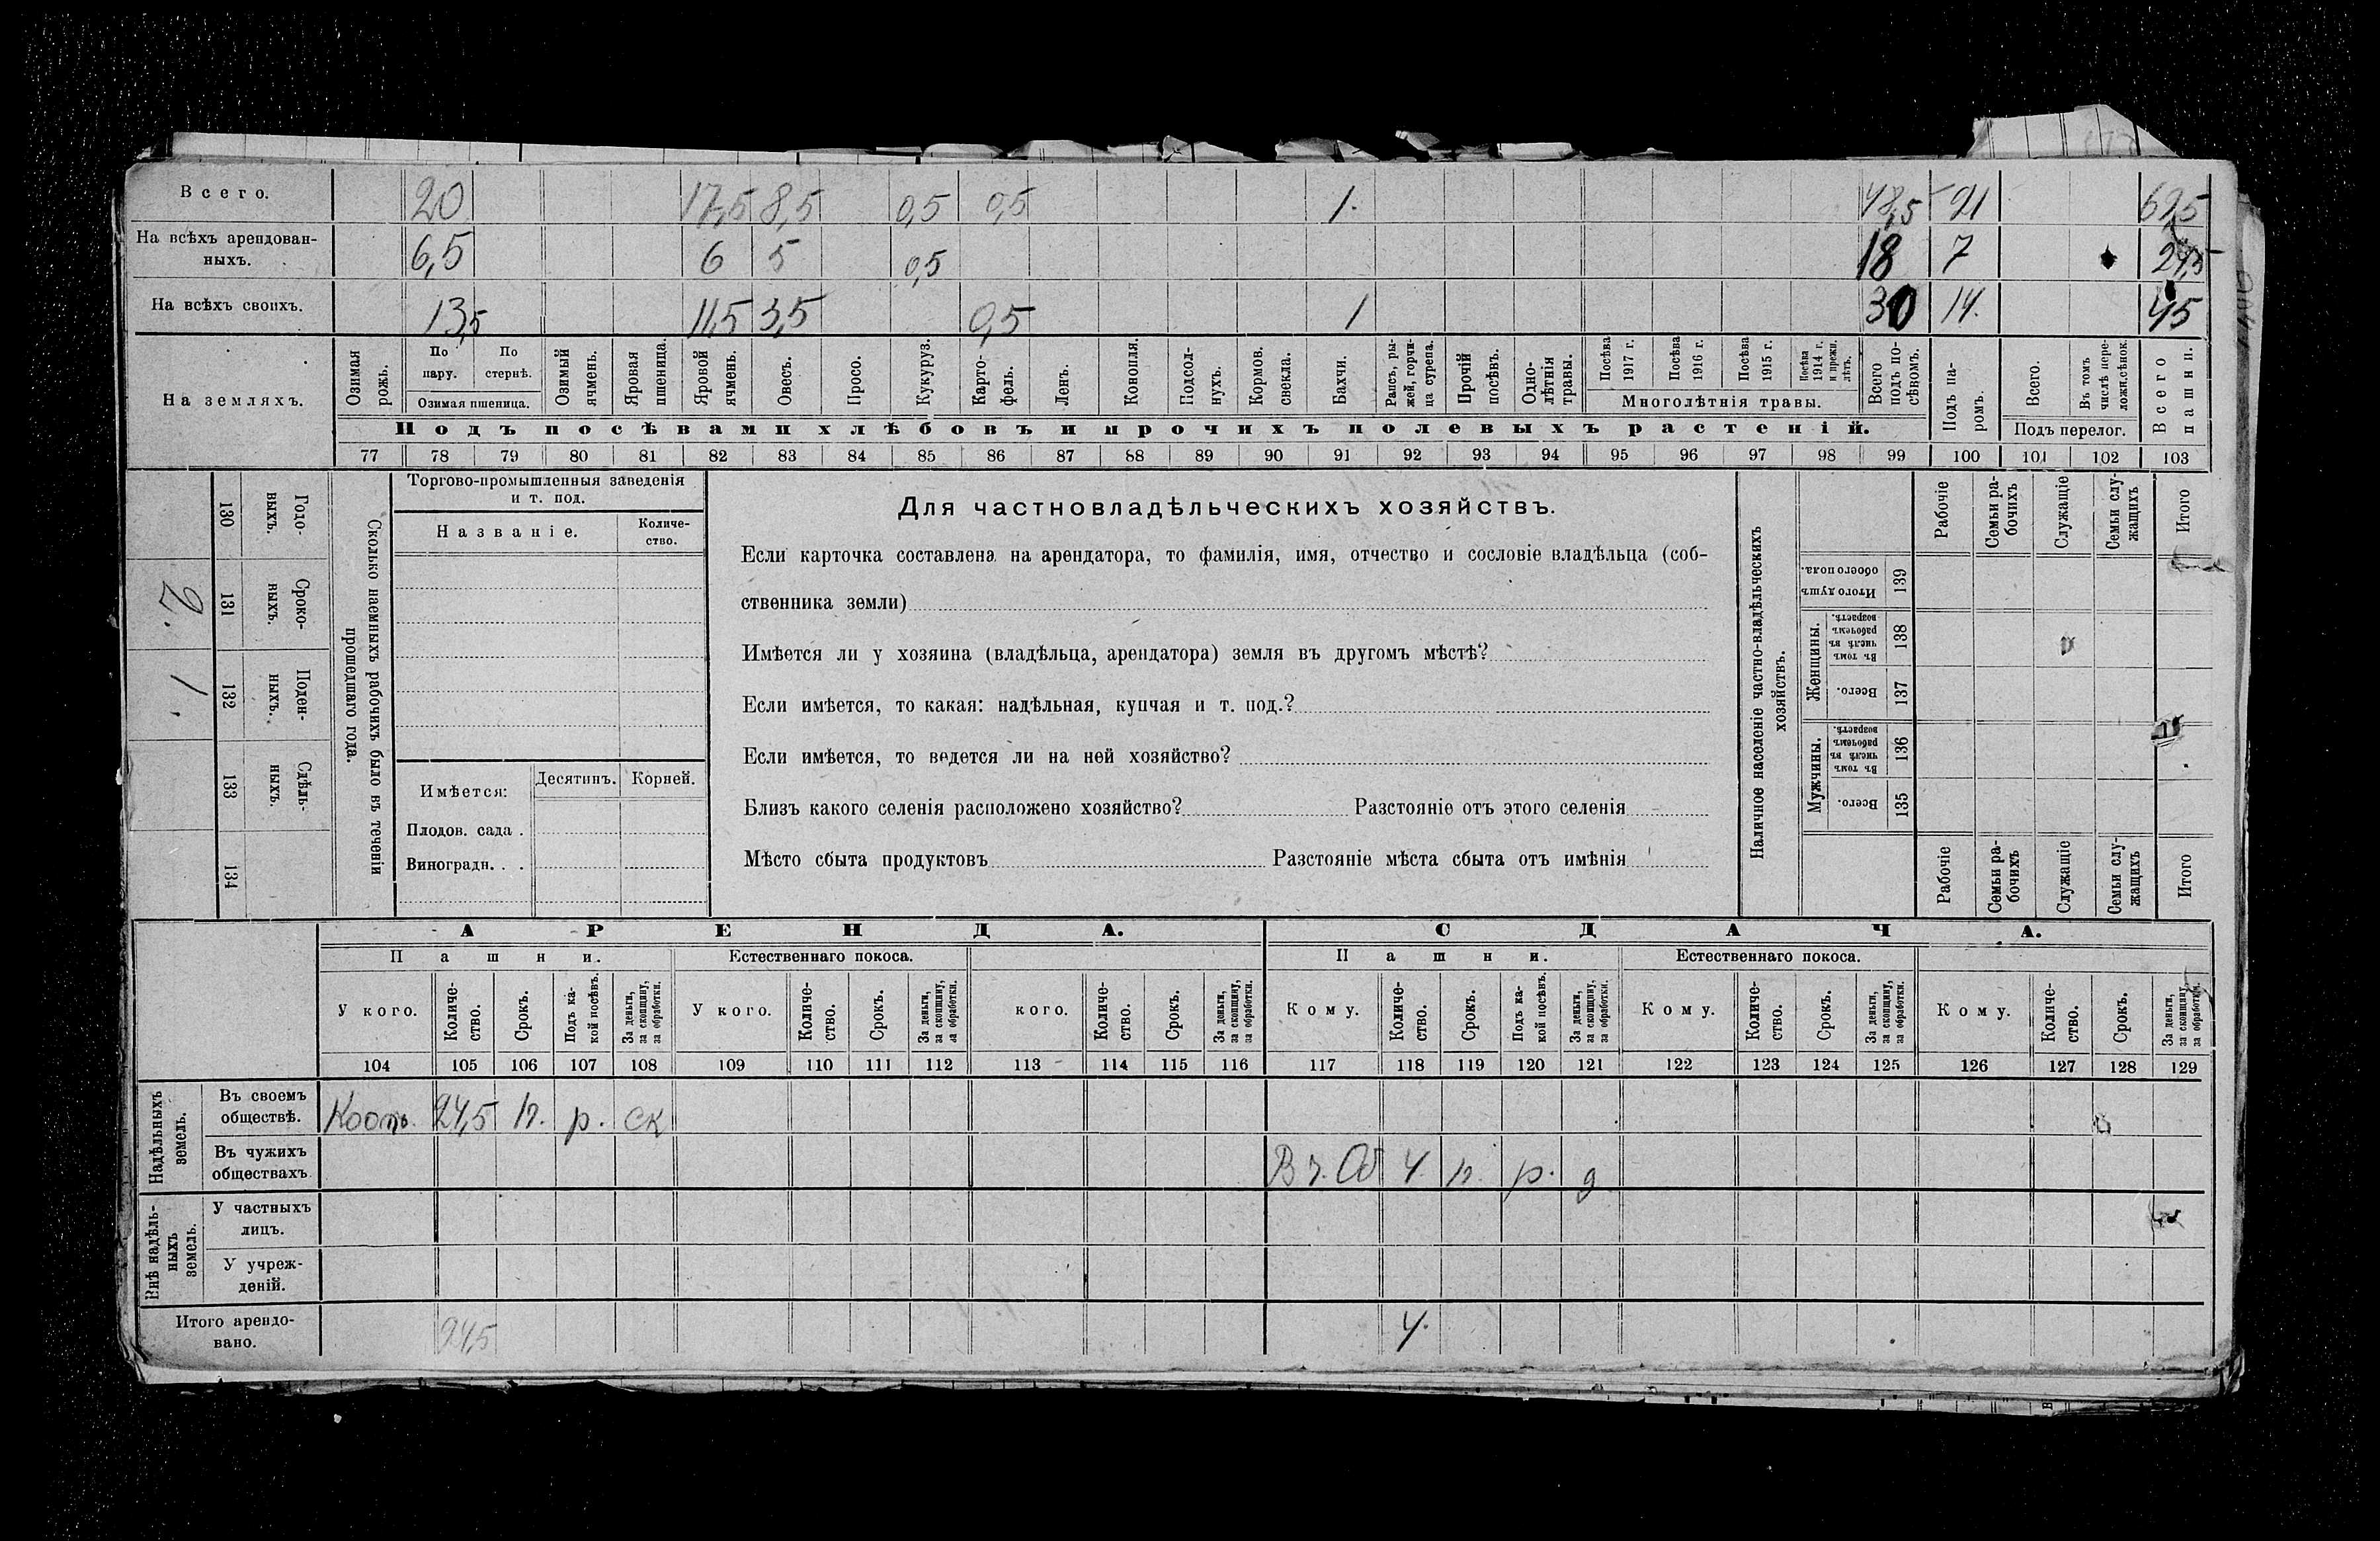 Всего. 20 17,5 8,5 0,5 0,5 1. 48,5 21 69,5
На всѣхъ арендован-
ныхъ. 6,5 6 5 0,5 18 7 24,5
На всѣхъ своихъ. 13,5 11,5 3,5 0,5 1 30 14. 45
На земляхъ.
Озимая рожь.
По пару.
По стернѣ.
Озимая пшеница.
Озимый ячмень.
Яровая пшеница.
Яровой ячмень.
Овесъ.
Просо.
Кукуруз.
Карто-
фель.
Ленъ.
Конопля.
Подсол-
нухъ.
Кормов.
свекла.
Бахчи.
Рапсъ, ры-
жей, горчи-
ца сурепа.
Прочій
посѣвъ.
Одно-
лѣтнія
травы.
Посѣва
1917 г.
Посѣва
1916 г.
Посѣва
1915 г.
Посѣва
1914 г.
и прежн.
лѣтъ.
Многолѣтнія травы.
Всего
подъ по-
сѣвомъ.
Подъ па-
ромъ.
Всего.
Въ томъ
числѣ пере-
ложн.сѣнок.
Подъ перелог.
Всего
пашни.
Подъ посѣвами хлѣбовъ и прочихъ полевыхъ растеній.
77 78 79 80 81 82 83 84 85 86 87 88 89 90 91 92 93 94 95 96 97 98 99 100 101 102 103
Годо-
выхъ.
130
Сроко-
ныхъ.
131
2.
Поден-
ныхъ.
132
1.
Сдѣль-
ныхъ.
133
134
Сколько наемныхъ рабочихъ было въ теченіи
прошедшаго года.
Торгово-промышленныя заведенія
и т. под.
Названіе.
Количе-
ство.
Имѣется:
Десятинъ.
Корней.
Плодов. сада .
Виноградн. . .
Для частновладѣльческихъ хозяйствъ.
Если карточка составлена на арендатора, то фамилія, имя, отчество и сословіе владѣльца (соб-
ственника земли)
Имѣется ли у хозяина (владѣльца, арендатора) земля въ другомъ мѣстѣ?
Если имѣется, то какая: надѣльная, купчая и т. под.?
Если имѣется, то ведется ли на ней хозяйство?
Близъ какого селенія расположено хозяйство? Разстояніе отъ этого селенія
Мѣсто сбыта продуктовъ Разстояніе мѣста сбыта отъ имѣнія
Наличное населеніе частно-владѣльческихъ
хозяйствъ.
Рабочіе
Семьи ра-
бочихъ
Служащіе
Семьи слу-
жащихъ
Итого
Итого душъ
обоего пола.
139
Женщины.
Въ томъ
числѣ въ
рабочемъ
возрастѣ.
138
Всего.
137
Мужчины.
Въ томъ
числѣ въ
рабочемъ
возрастѣ.
136
Всего.
135
Рабочіе
Семьи ра-
бочихъ
Служащіе
Семьи слу-
жащихъ
Итого
АРЕНДА. СДАЧА.
Пашни. Естественнаго покоса. Пашни. Естественнаго покоса.
У кого.
Количе-
ство.
Срокъ.
Подъ ка-
кой посѣвъ.
За деньги,
за скопщину,
за обработки.
У кого.
Количе-
ство.
Срокъ.
За деньги,
за скопщину,
за обработки.
кого.
Количе-
ство.
Срокъ.
За деньги,
за скопщину,
за обработки.
Кому.
Количе-
ство.
Срокъ.
Подъ ка-
кой посѣвъ.
За деньги,
за скопщину,
за обработки.
Кому.
Количе-
ство.
Срокъ.
За деньги,
за скопщину,
за обработки.
Кому.
Количе-
ство.
Срокъ.
За деньги,
за скопщину,
за обработки.
104 105 106 107 108 109 110 111 112 113 114 115 116 117 118 119 120 121 122 123 124 125 126 127 128 129
Надѣльныхъ
земель.
Въ своемъ
обществѣ. 24,5 п. р. ск
Въ чужихъ
обществахъ. 4. п. р. д
Внѣ надѣль-
ныхъ
земель.
У частныхъ
лицъ.
У учреж-
деній.
Итого арендо-
вано. 24,5 4.